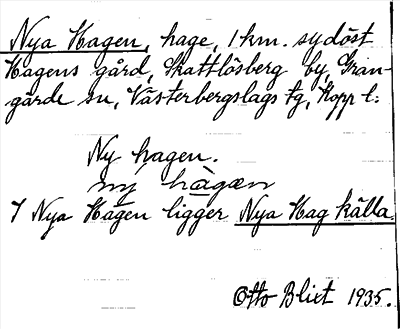 Nya Hagen, hage, 1 km. sydöst
Hagens gård, Skattlösberg by, Gran-
gärde sn, Västerbergslags tg, Kopp l:
Ny hagen.
ny hàgæn
I Nya Hagen ligger Nya Hag källa.
Otto Blixt 1935.